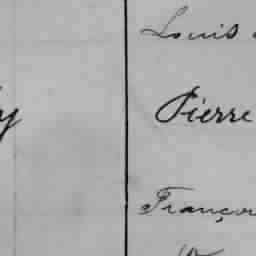 Louis
y Pierre
Françoi